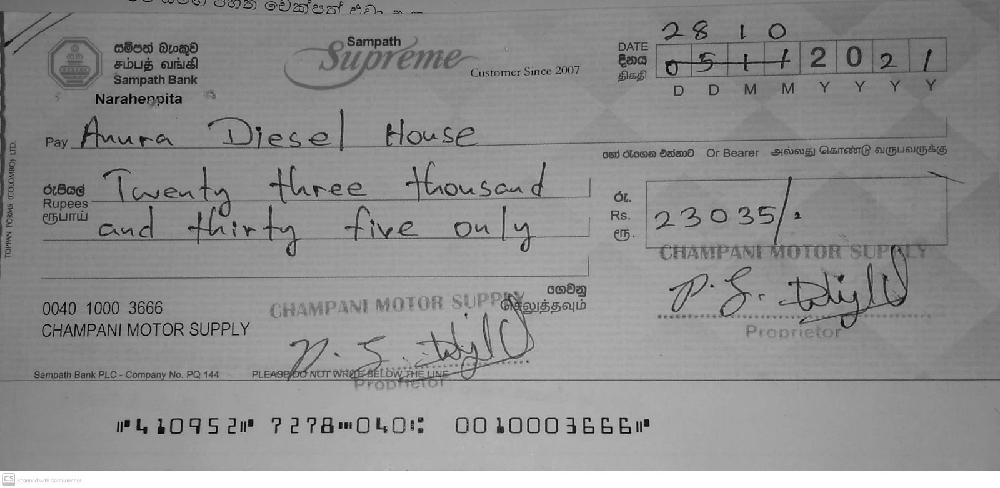 සම්පත් බැංකුව
சம்பத் வங்கி
Sampath Bank
Narahenpita
Sampath
Supreme
Customer Since 2007
28 10
DATE
දිනය
திகதி
0 5 1 1 2 0 2 1
D D M M Y Y Y Y
Pay Anura Diesel House
හෝ රැගෙන එන්නාට Or Bearer அல்லது கொண்டு வருபவருக்கு
රුපියල්
Rupees
ரூபாய்
Twenty three thousand
and thirty five only
රු.
Rs.
ரூ.
23035/.
CHAMPANI MOTOR SUPPLY
Proprietor
ගෙවනු
செலுத்தவும்
0040 1000 3666
CHAMPANI MOTOR SUPPLY
CHAMPANI MOTOR SUPPLY
Sampath Bank PLC - Company No. PQ 144
PLEASE DO NOT WRITE BELOW THE LINE
Proprietor
TOPPAN FORMS (COLOMBO) LTD.
⑈410952⑈ 7278⑉040⑆ 0010003666⑈
CS